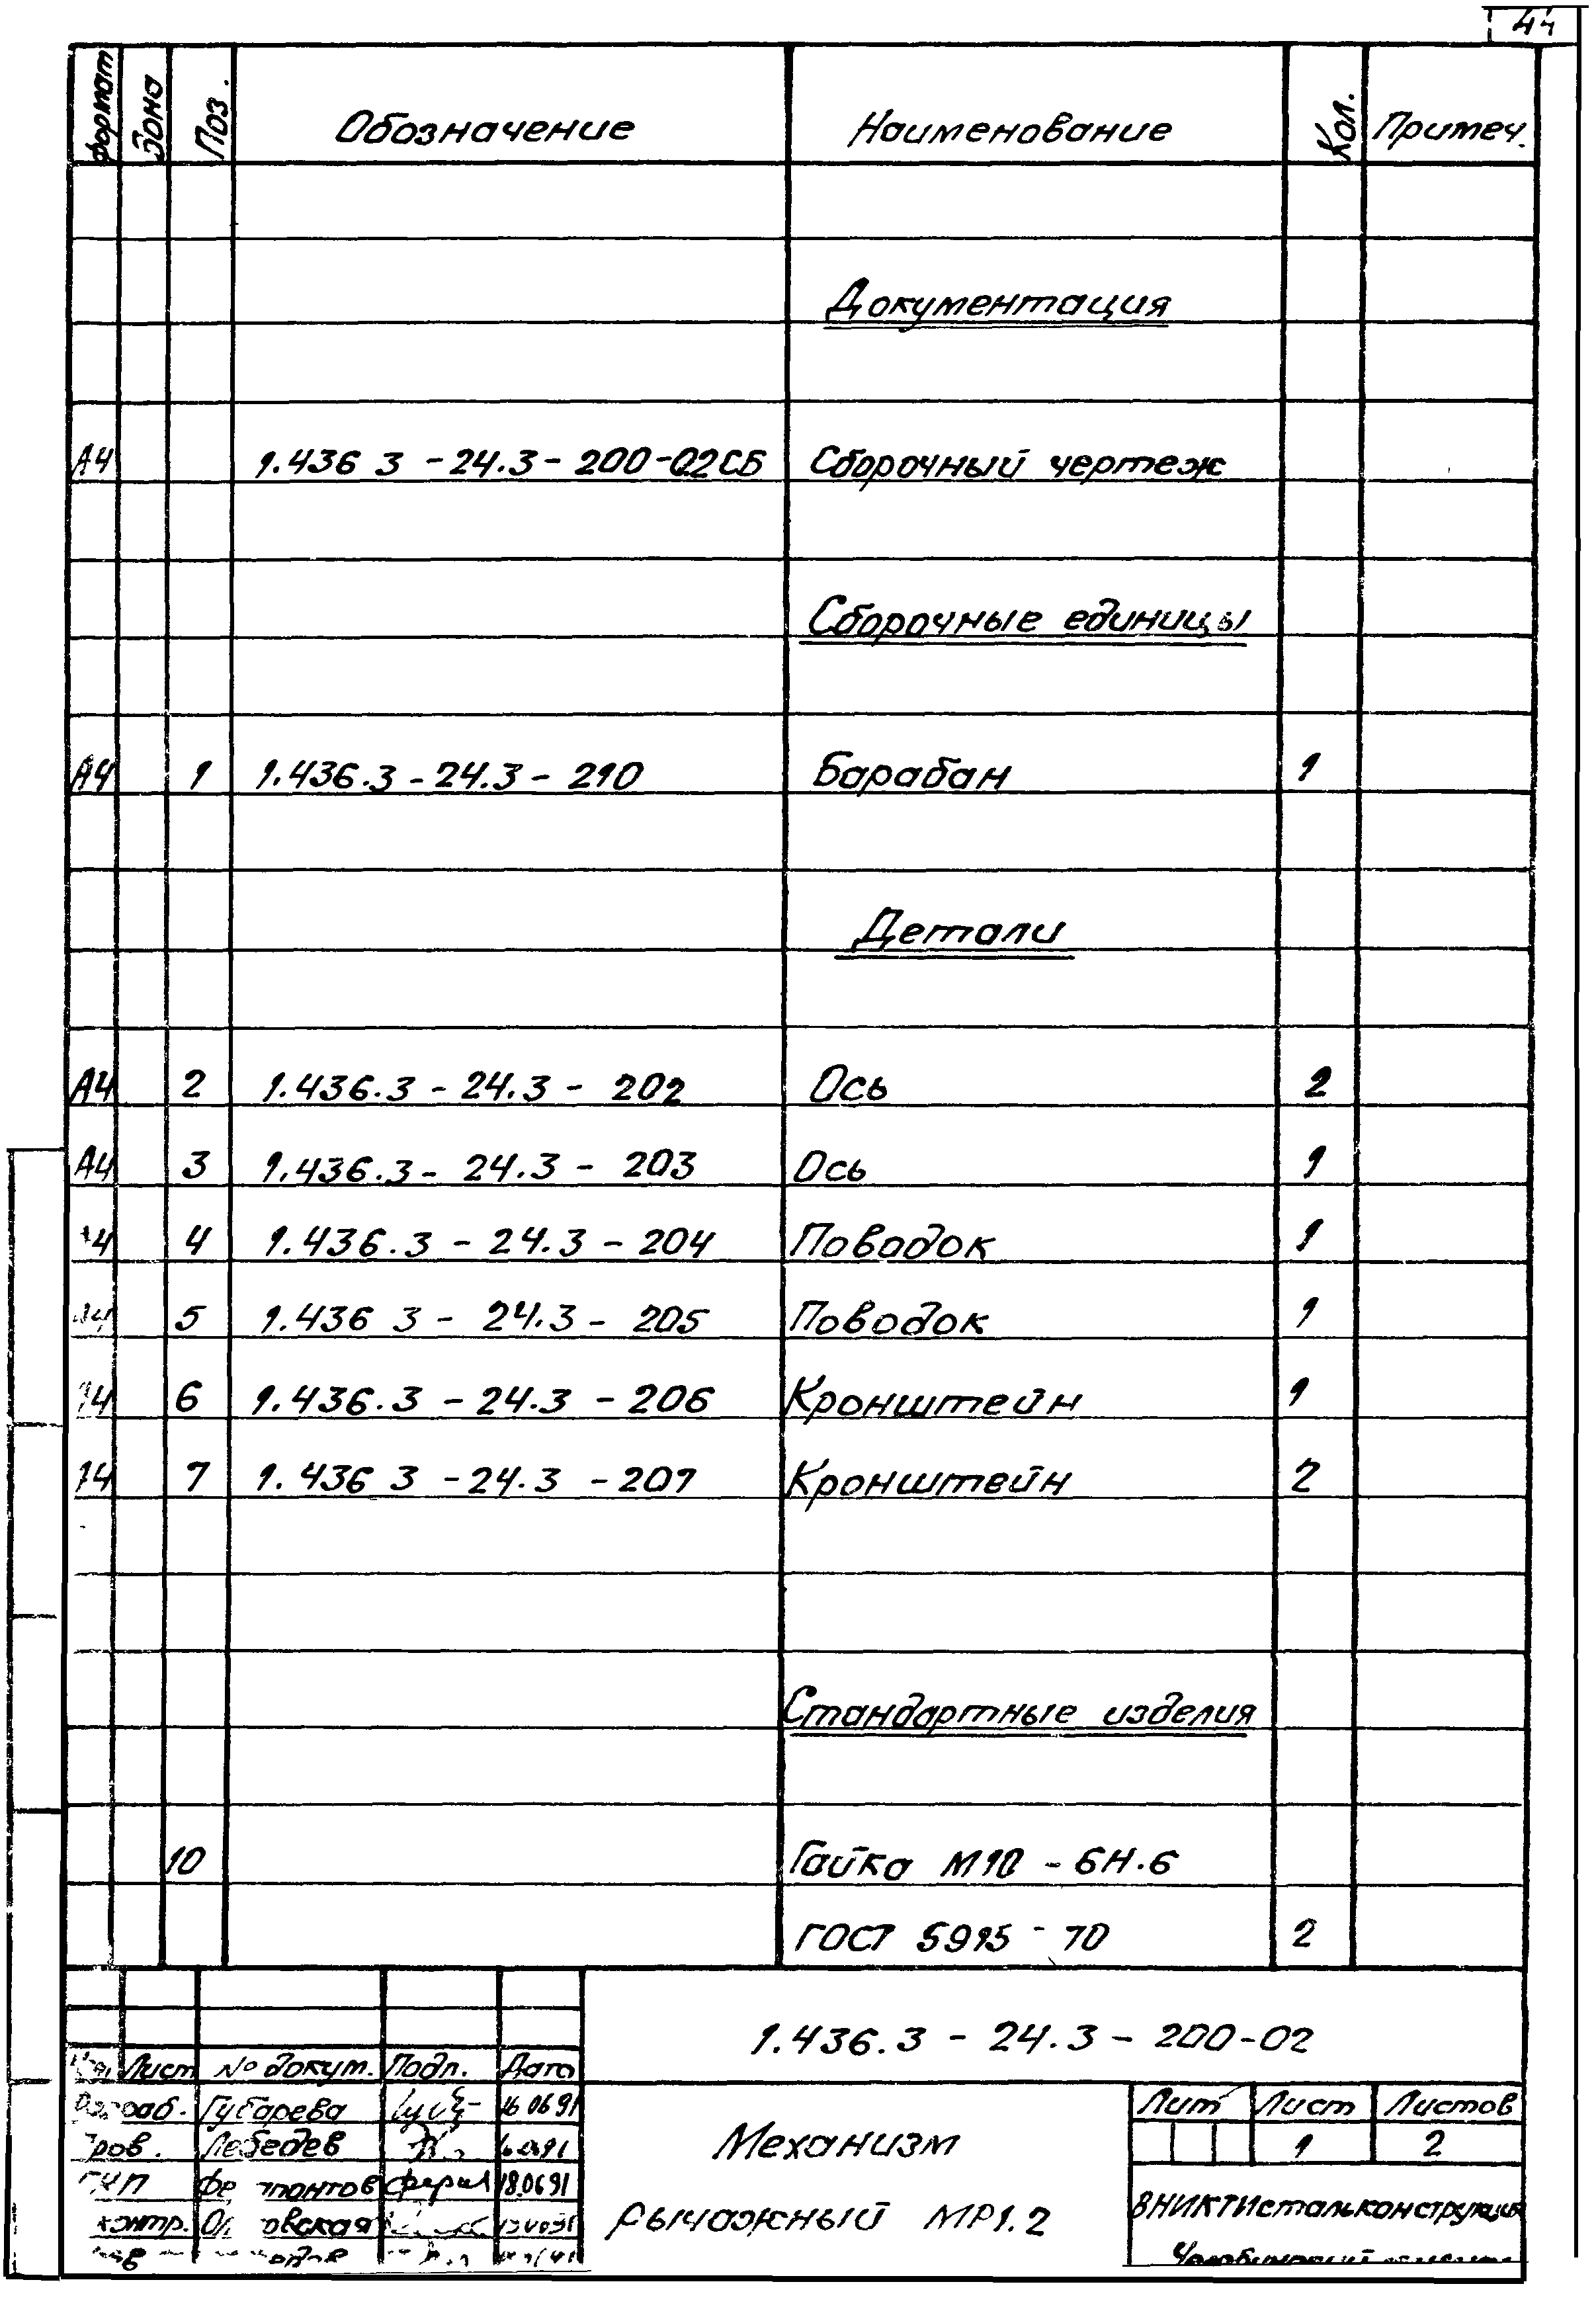 44
Формат Зона Поз. Обозначение Наименование Кол. Примеч.
Документация
А4 1.436 3 - 24.3 - 200-02СБ Сборочный чертеж
Сборочные единицы
А4 1 1.436.3 - 24.3 - 210 Барабан 1
Детали
А4 2 1.436.3 - 24.3 - 202 Ось 2
А4 3 1.436.3 - 24.3 - 203 Ось 1
4 4 1.436.3 - 24.3 - 204 Поводок 1
5 1.436 3 - 24.3 - 205 Поводок 1
4 6 1.436.3 - 24.3 - 206 Кронштейн 1
4 7 1.436 3 - 24.3 - 207 Кронштейн 2
Стандартные изделия
10 Гайка М10 - 6Н.6
ГОСТ 5915 - 70 2
1.436.3 - 24.3 - 200-02
Лист № докум. Подп. Дата
Губарева 16.06.91
Лебедев
18.06.91
контр.
Механизм
рычажный МР1.2
Лит Лист Листов
1 2
ВНИКТИстальконструкция